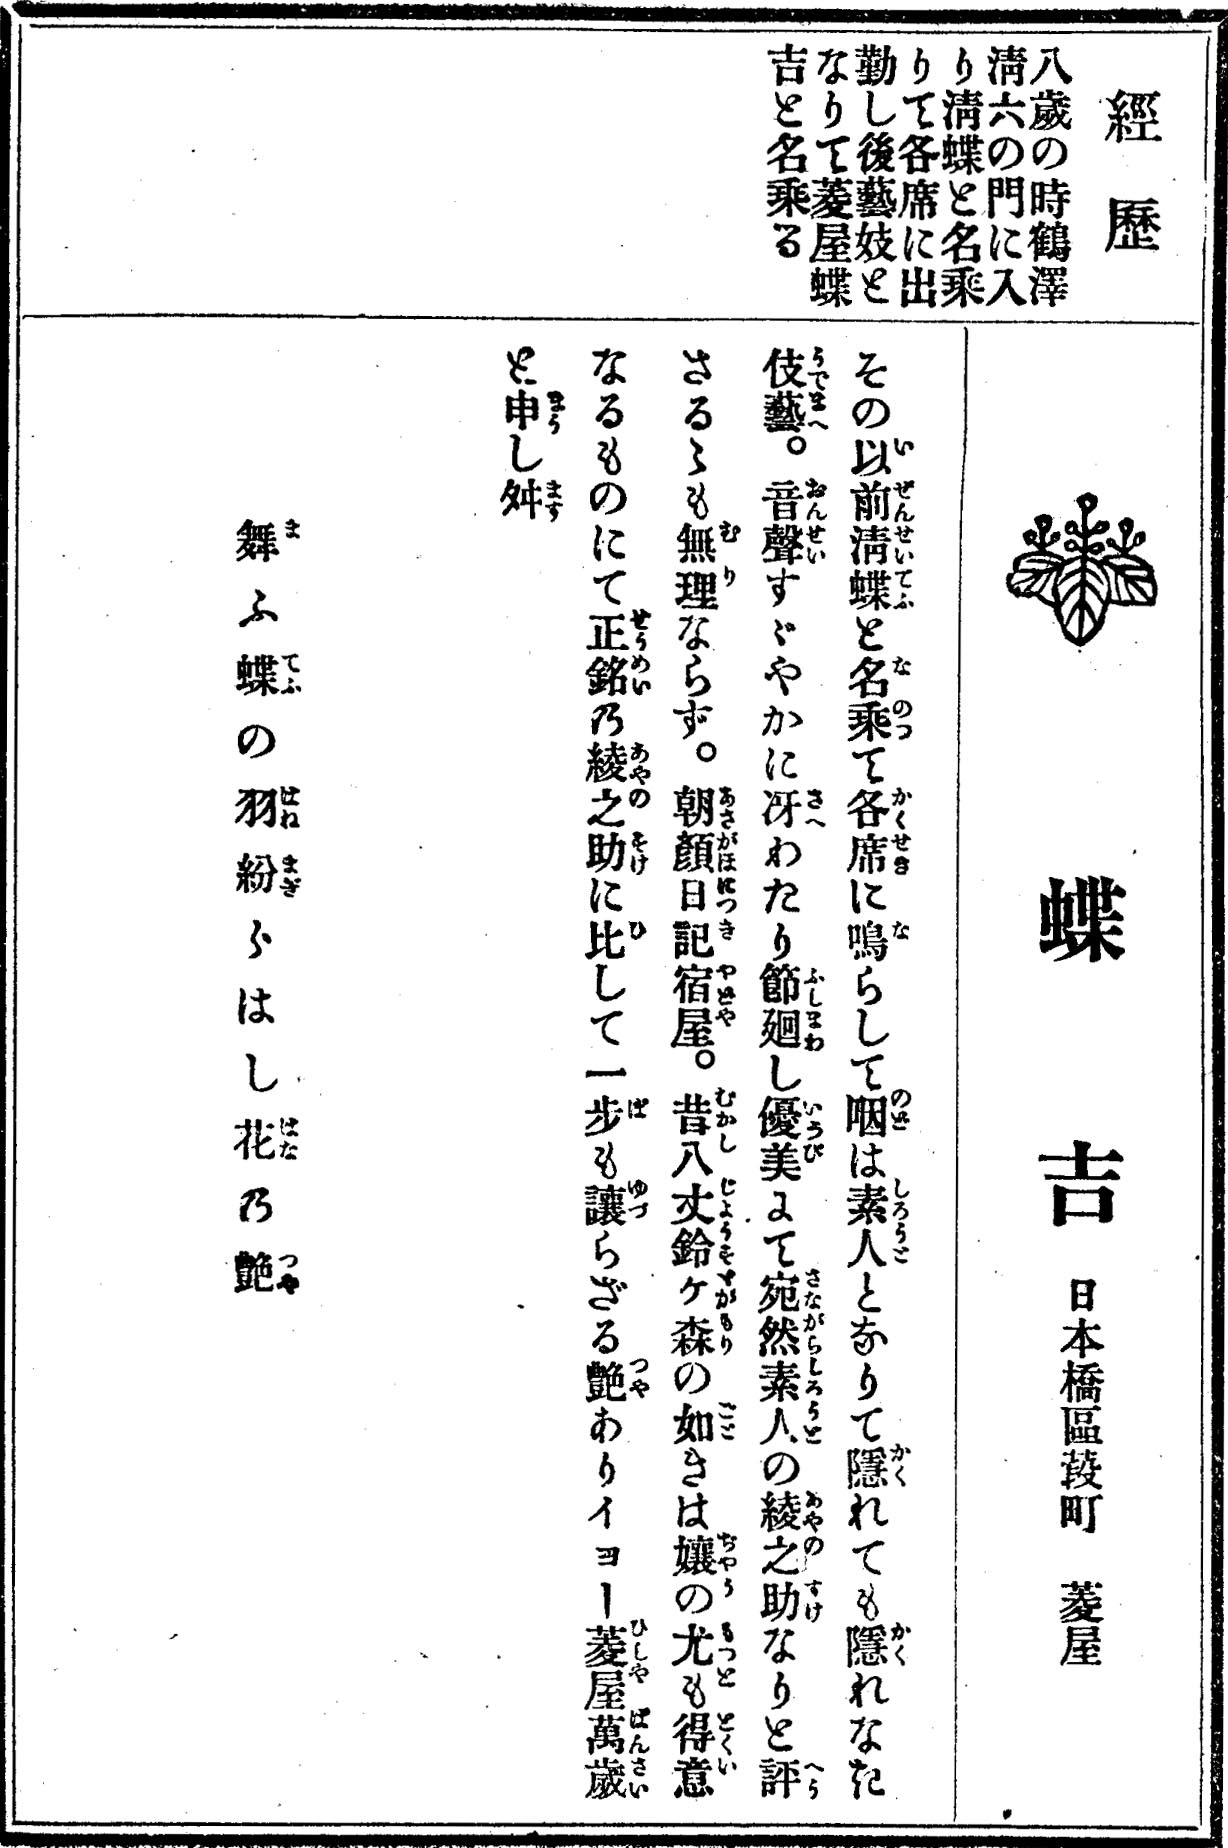 經歷
八歲の時鶴澤
淸六の門に入
り淸蝶と名乘
りて各席に出
勤し後藝妓と
なりて菱屋蝶
吉と名乘る
蝶吉 日本橋區葭町 菱屋
その以前淸蝶と名乘て各席に鳴らして咽は素人となりて隱れても隱れなき
伎藝。音聲すゞやかに冴わたり節廻し優美にて宛然素人の綾之助なりと評
さるゝも無理ならず。朝顏日記宿屋。昔八丈鈴ケ森の如きは孃の尤も得意
なるものにて正銘乃綾之助に比して一步も讓らざる艶ありイヨー菱屋萬歲
と申し舛
舞ふ蝶の羽紛らはし花乃艶